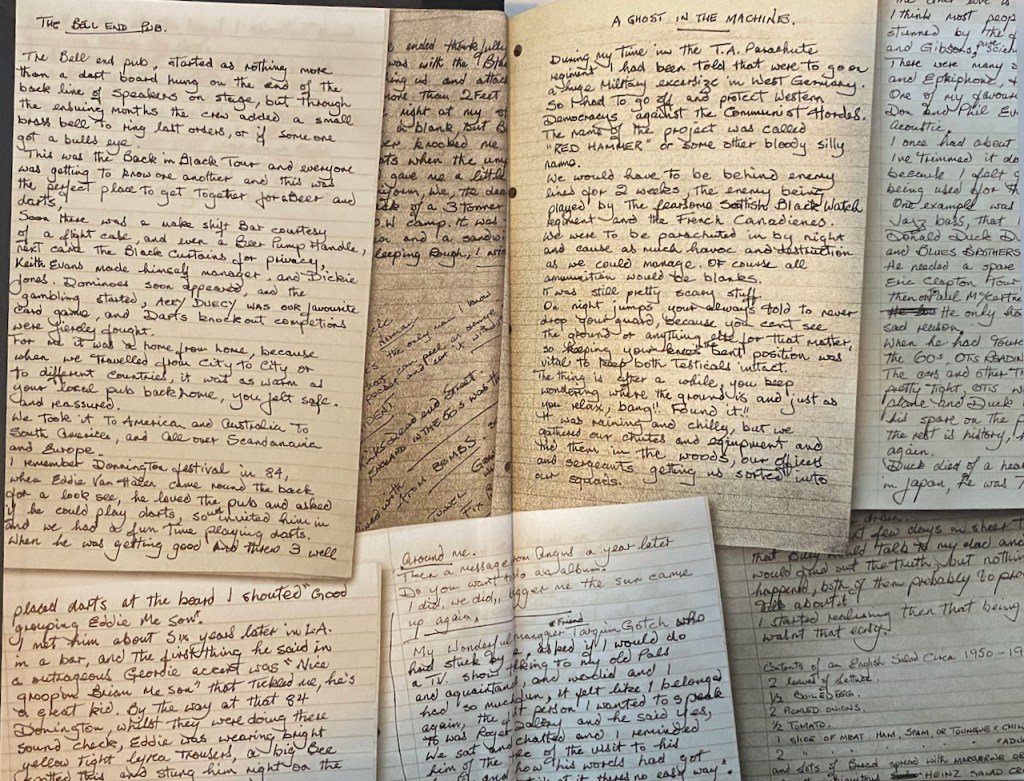 THE BELL END PUB.
The Bell end pub, started as nothing more
than a dart board hung on the end of the
back line of speakers on stage, but through
the ensuing months the crew added a small
brass bell to ring last orders, or if someone
got a bulls eye.
This was the Back in Black Tour and everyone
was getting to know one another and this was
the perfect place to get together for a Beer and
darts,
Soon there was a make shift Bar courtesy
of a flight case, and even a Beer Pump Handle,
next came the Black Curtains for privacy,
Keith Evans made himself manager and Dickie
Jones. Dominoes soon appeared, and the
gambling started, ACKY DUECY was our favourite
card game, and Darts knock out completions
were fiercley fought.
For me it was a home from home, because
when we travelled from City to City or
to different countries, it was as warm as
your local pub back home, you felt safe.
and reassured.
We took it to American and Australia to
South America, and all over Scandanavia
and Europe.
I remember Donnington festival in 84,
when Eddie Van Halen came round the back
for a look see, he loved the pub and asked
if he could play darts, so we invited him in
and we had a fun time playing darts.
When he was getting good and threw 3 well
placed darts at the board I shouted "Good
grouping Eddie Me son".
I met him about six years later in L.A.
in a bar, and the first thing he said in
a outrageous Geordie accent was "Nice
groopin Brian Me son" that tickled me, he's
a great kid. By the way at that 84
Donington, whilst they were doing there
sound check, Eddie was wearing bright
yellow tight lycra trousers, a big Bee
spotted this and stung him right on the
ended thankfully
was with the
ing us and attac
more than 2 Feet
right at my
a blank, but B
knocked me
when the um
gave me a little
uniform, We, the dea
of a 3 tonner
camp. it was
and a sandw
leeping rough, I
the only way I know
peel an orange
ENGLAND IN THE 60'S was the
ATOM BOMBS.
A GHOST IN THE MACHINE.
During my time in the T.A. Parachute
regiment I had been told that were to go on
a huge Military excersize in West Germany.
So I had to go off and protect Western
Democracys against the Communist Hordes.
The name of the project was called
"RED HAMMER" or some other bloody silly
name.
We would have to be behind enemy
lines for 2 weeks, the enemy being
played by the fearsome Scottish Black Watch
regiment and the French Canadienes.
We were to be parachuted in by night
and cause as much havoc and destruction
as we could manage. Of course all
ammunition would be blanks.
It was still pretty scary stuff.
On night jumps your always told to never
drop your guard, because you cant see
the ground or anything else for that matter,
so keeping your knees bent position was
vital to keep both testicals intact.
The thing is after a while, you keep
wondering where the ground is and just as
you relax, bang!! Found it!!
It was raining and chilly, but we
gathered our chutes and equipment and
hid them in the woods, our officers
and sergeants getting us sorted into
our squads.
I think most peop
stunned by the
and Gibsons,
There were many
and Epiphone,
One of my favour
Don and Phil Ev
Acoustic.
I once had about
I've trimmed it do
because I felt
being used for
One example was
Jazz bass, that
Donald Duck Du
and BLUES BROTHERS
He needed a spare
Eric Clapton Tour
then on Paul McCartne
He only ho
sad reason.
When he had Toure
the 60s, OTIS READIN
The cars and other T
pretty tight, OTIS w
alone and Duck
his spare on the p
the rest is history,
again.
Duck died of a hea
in Japan, he was 7
around me.
Then a message from Angus a year later
Do you want to do an album,
I did, we did, bigger me the sun came
up again.
My Wonderful manager & Friend Tarquin Gotch who
had stuck by me, asked if I would do
a TV. show talking to my old Pals
and aquaintances, and we did and I
had so much fun, it felt like I belonged
again, the 1st person I wanted to speak
to was Roger Daltrey and he said yes,
We sat and chatted and I reminded
him of the visit to his
how his words had got
at it theres no easy way".
few days in sheer T
that Billy would talk to my dad and
would find out the truth, but nothin
happened, both of them probably to pro
talk about it.
I started realising then that being
wasnt that easy.
Contents of an English Salad Circa 1950-19
2 leaves of Lettuce.
1/2 BOILED EGG.
2 PICKLED ONIONS.
1/2 TOMATO.
1 SLICE OF MEAT. HAM, SPAM, OR TOUNGUE & CHIL
and lots of Bread spread with MARGARINE OR
HEINZ SALAD CR